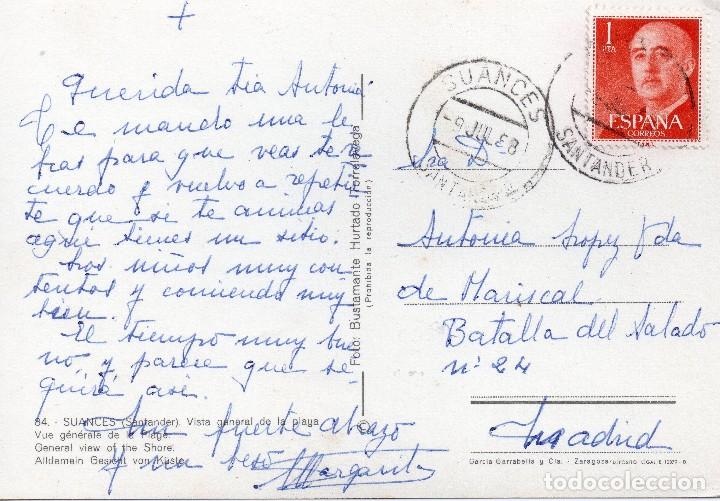 +
Querida Tia Antonia
Te mando una le
tras para que veas te re
cuerdo y vuelvo a repetir
te que si te animas
aqui tienes un sitio.
Los niños muy con
tentos y comiendo muy
bien.
El tiempo muy bue
no y parece que se
guirá asi.
Un fuerte abrazo
y un beso
Margarita
84. - SUANCES (Santander). Vista general de la playa
Vue générale de la Plage.
General view of the Shore.
Alldemein Gesicht von Küste
Foto: Bustamante Hurtado (Torrelavega)
(Prohibida la reproducción)
SUANCES
JUL 63
SANTANDER
1
PTA
ESPAÑA
CORREOS
SANTANDER
Sra Dª
Antonia Lopez Vda
de Mariscal
Batalla del Salado
nº 24
Madrid
García Garrabella y Cía. - Zaragoza